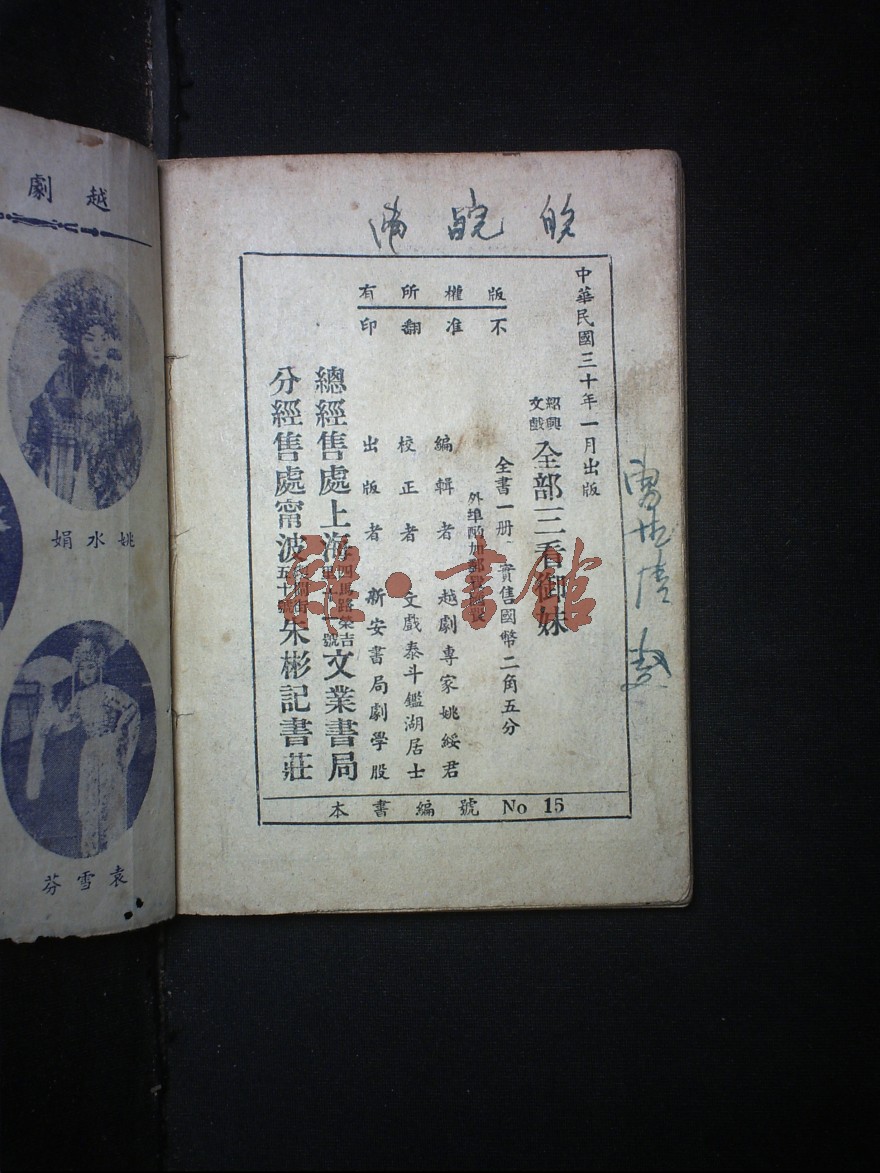 版權所有
不准翻印
中華民國三十年一月出版
紹興文戲 全部三看御妹
全書一册 實售國幣二角五分
外埠酌加郵
編輯者 越劇專家姚綏君
校正者 文戲泰斗鑑湖居士
出版者 新安書局劇學股
總經售處上海四馬路榮吉 號文業書局
分經售處甯波 五十號朱彬記書莊
本書編號 No 15
越劇
姚水娟
袁雪芬
書館